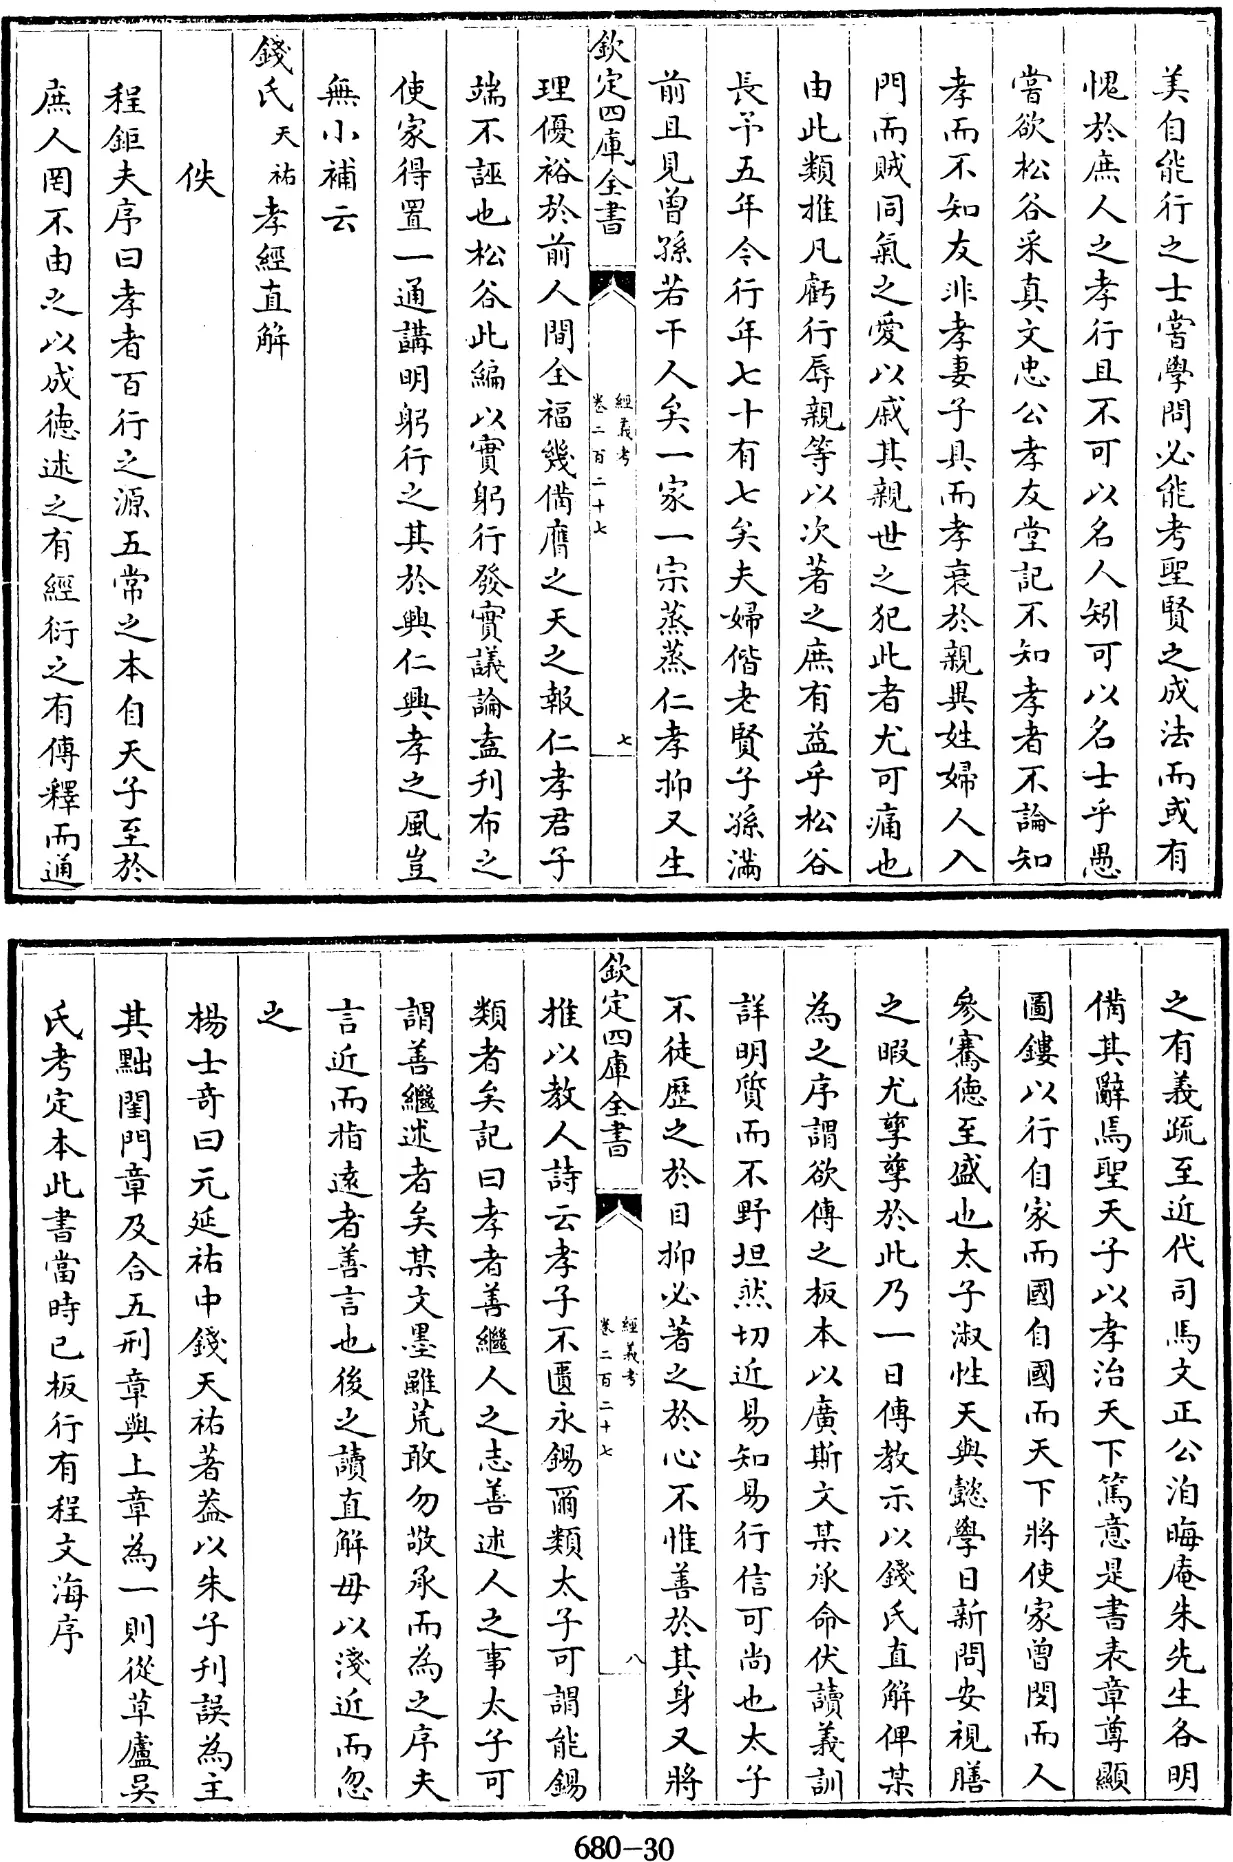 美自能行之士嘗學問必能考聖賢之成法而或有
愧於庶人之孝行且不可以名人矧可以名士乎愚
嘗欲松谷采真文忠公孝友堂記不知孝者不論知
孝而不知友非孝妻子具而孝衰於親異姓婦人入
門而賊同氣之愛以戚其親世之犯此者尤可痛也
由此類推凡虧行辱親等以次著之庶有益乎松谷
長予五年今行年七十有七矣夫婦偕老賢子孫滿
前且見曾孫若干人矣一家一宗蒸蒸仁孝抑又生
欽定四庫全書
經義考
卷二百二十七
七
理優裕於前人間全福幾備膺之天之報仁孝君子
端不誣也松谷此編以實躬行發實議論盍刊布之
使家得置一通講明躬行之其於興仁興孝之風豈
無小補云
錢氏天祐孝經直解
佚
程鉅夫序曰孝者百行之源五常之本自天子至於
庶人罔不由之以成德述之有經衍之有傳釋而通
之有義疏至近代司馬文正公洎晦庵朱先生各明
備其辭焉聖天子以孝治天下篤意是書表章尊顯
圖鏤以行自家而國自國而天下將使家曾閔而人
參騫德至盛也太子淑性天與懿學日新問安視膳
之暇尤孳孳於此乃一日傳教示以錢氏直解俾某
為之序謂欲傳之板本以廣斯文某承命伏讀義訓
詳明質而不野坦然切近易知易行信可尚也太子
不徒歷之於目抑必著之於心不惟善於其身又將
欽定四庫全書
經義考
卷二百二十七
八
推以教人詩云孝子不匱永錫爾類太子可謂能錫
類者矣記曰孝者善繼人之志善述人之事太子可
謂善繼述者矣某文墨雖荒敢勿敬承而為之序夫
言近而指遠者善言也後之讀直解毋以淺近而忽
之
楊士奇曰元延祐中錢天祐著葢以朱子刊誤為主
其黜閨門章及合五刑章與上章為一則從草廬吳
氏考定本此書當時已板行有程文海序
680-30